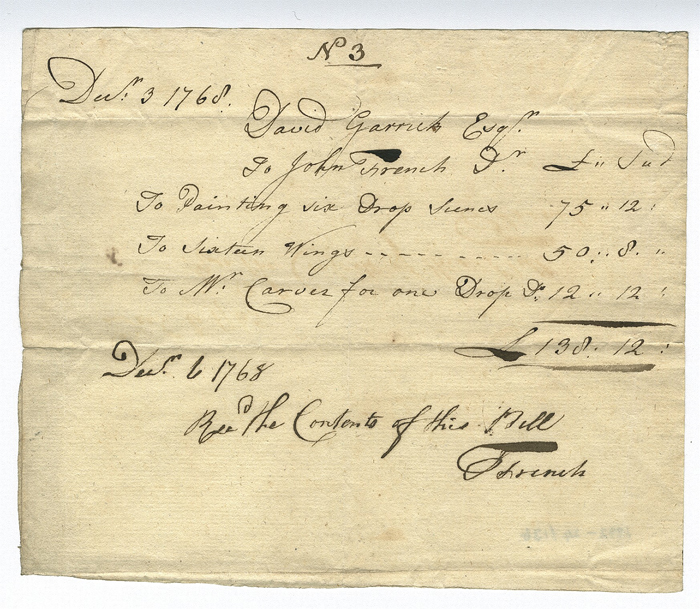 No 3
Decr. 3 1768.
David Garrick Esqr.
To John French Dr £ " S " d
To Painting six Drop Scenes 75 " 12 :
To Sixteen Wings ---------- 50 : 8 . "
To Mr Carver for one Drop Do. 12 " 12 :
£ 138 . 12 :
Decr. 6 1768
Recd the Contents of this Bill
J French